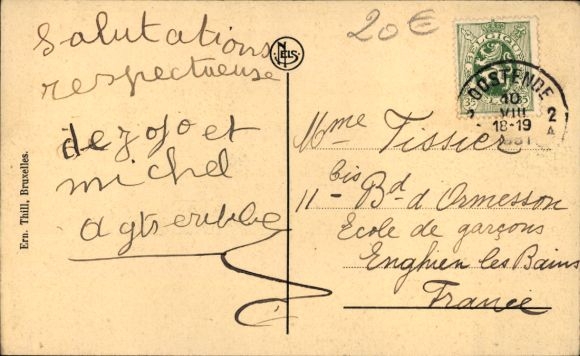 Salutations
respectueuse
de jojo et
michel
20€
NELS
Ern. Thill, Bruxelles.
BELGIE
35 35
OOSTENDE
2 2
10
VIII
18-19
1931
A
Mme Tissier
11 bis Bd d'Ormesson
Ecole de garçons
Enghien les Bains
France